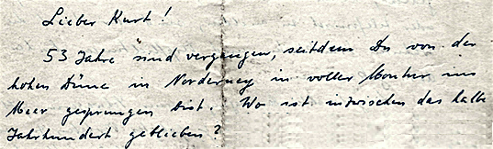 Lieber Kurt!
53 Jahre sind vergangen, seitdem Du von der
hohen Düne in Norderney in voller Montur ins
Meer gesprungen bist. Wo ist inzwischen das halbe
Jahrhundert geblieben?